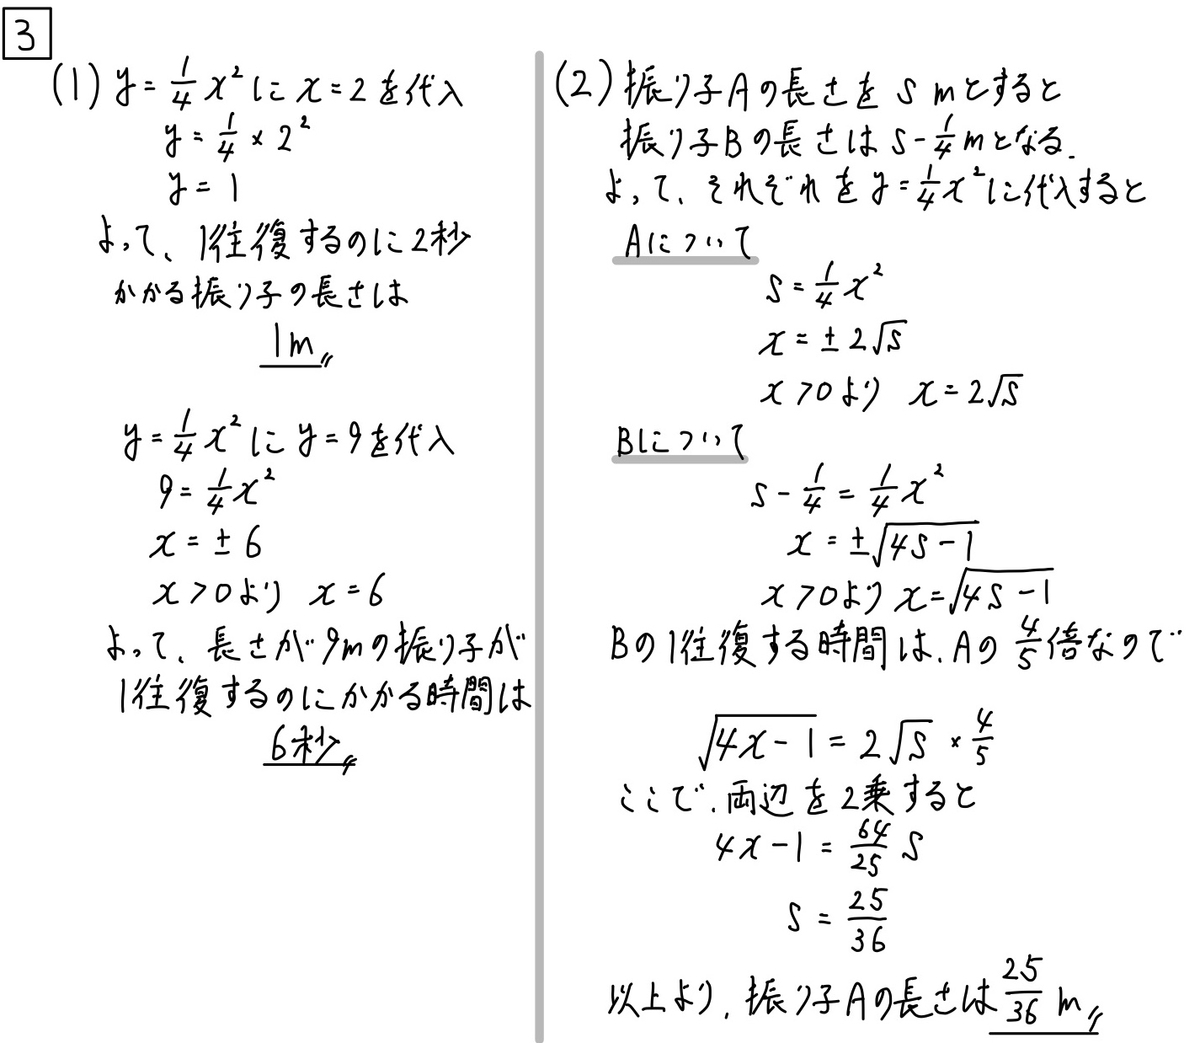 3
(1) y = 1/4 x² に x = 2 を代入
y = 1/4 × 2²
y = 1
よって、1往復するのに2秒
かかる振り子の長さは
1m
y = 1/4 x² に y = 9 を代入
9 = 1/4 x²
x = ± 6
x > 0 より x = 6
よって、長さが9mの振り子が
1往復するのにかかる時間は
6秒
(2) 振り子Aの長さを s mとすると
振り子Bの長さは s - 1/4 mとなる.
よって、それぞれを y = 1/4 x² に代入すると
Aについて
s = 1/4 x²
x = ± 2√s
x > 0 より x = 2√s
Bについて
s - 1/4 = 1/4 x²
x = ±√(4s - 1)
x > 0 より x = √(4s - 1)
Bの1往復する時間は、Aの 4/5 倍なので
√(4x - 1) = 2√s × 4/5
ここで、両辺を2乗すると
4x - 1 = 64/25 s
s = 25/36
以上より、振り子Aの長さは 25/36 m